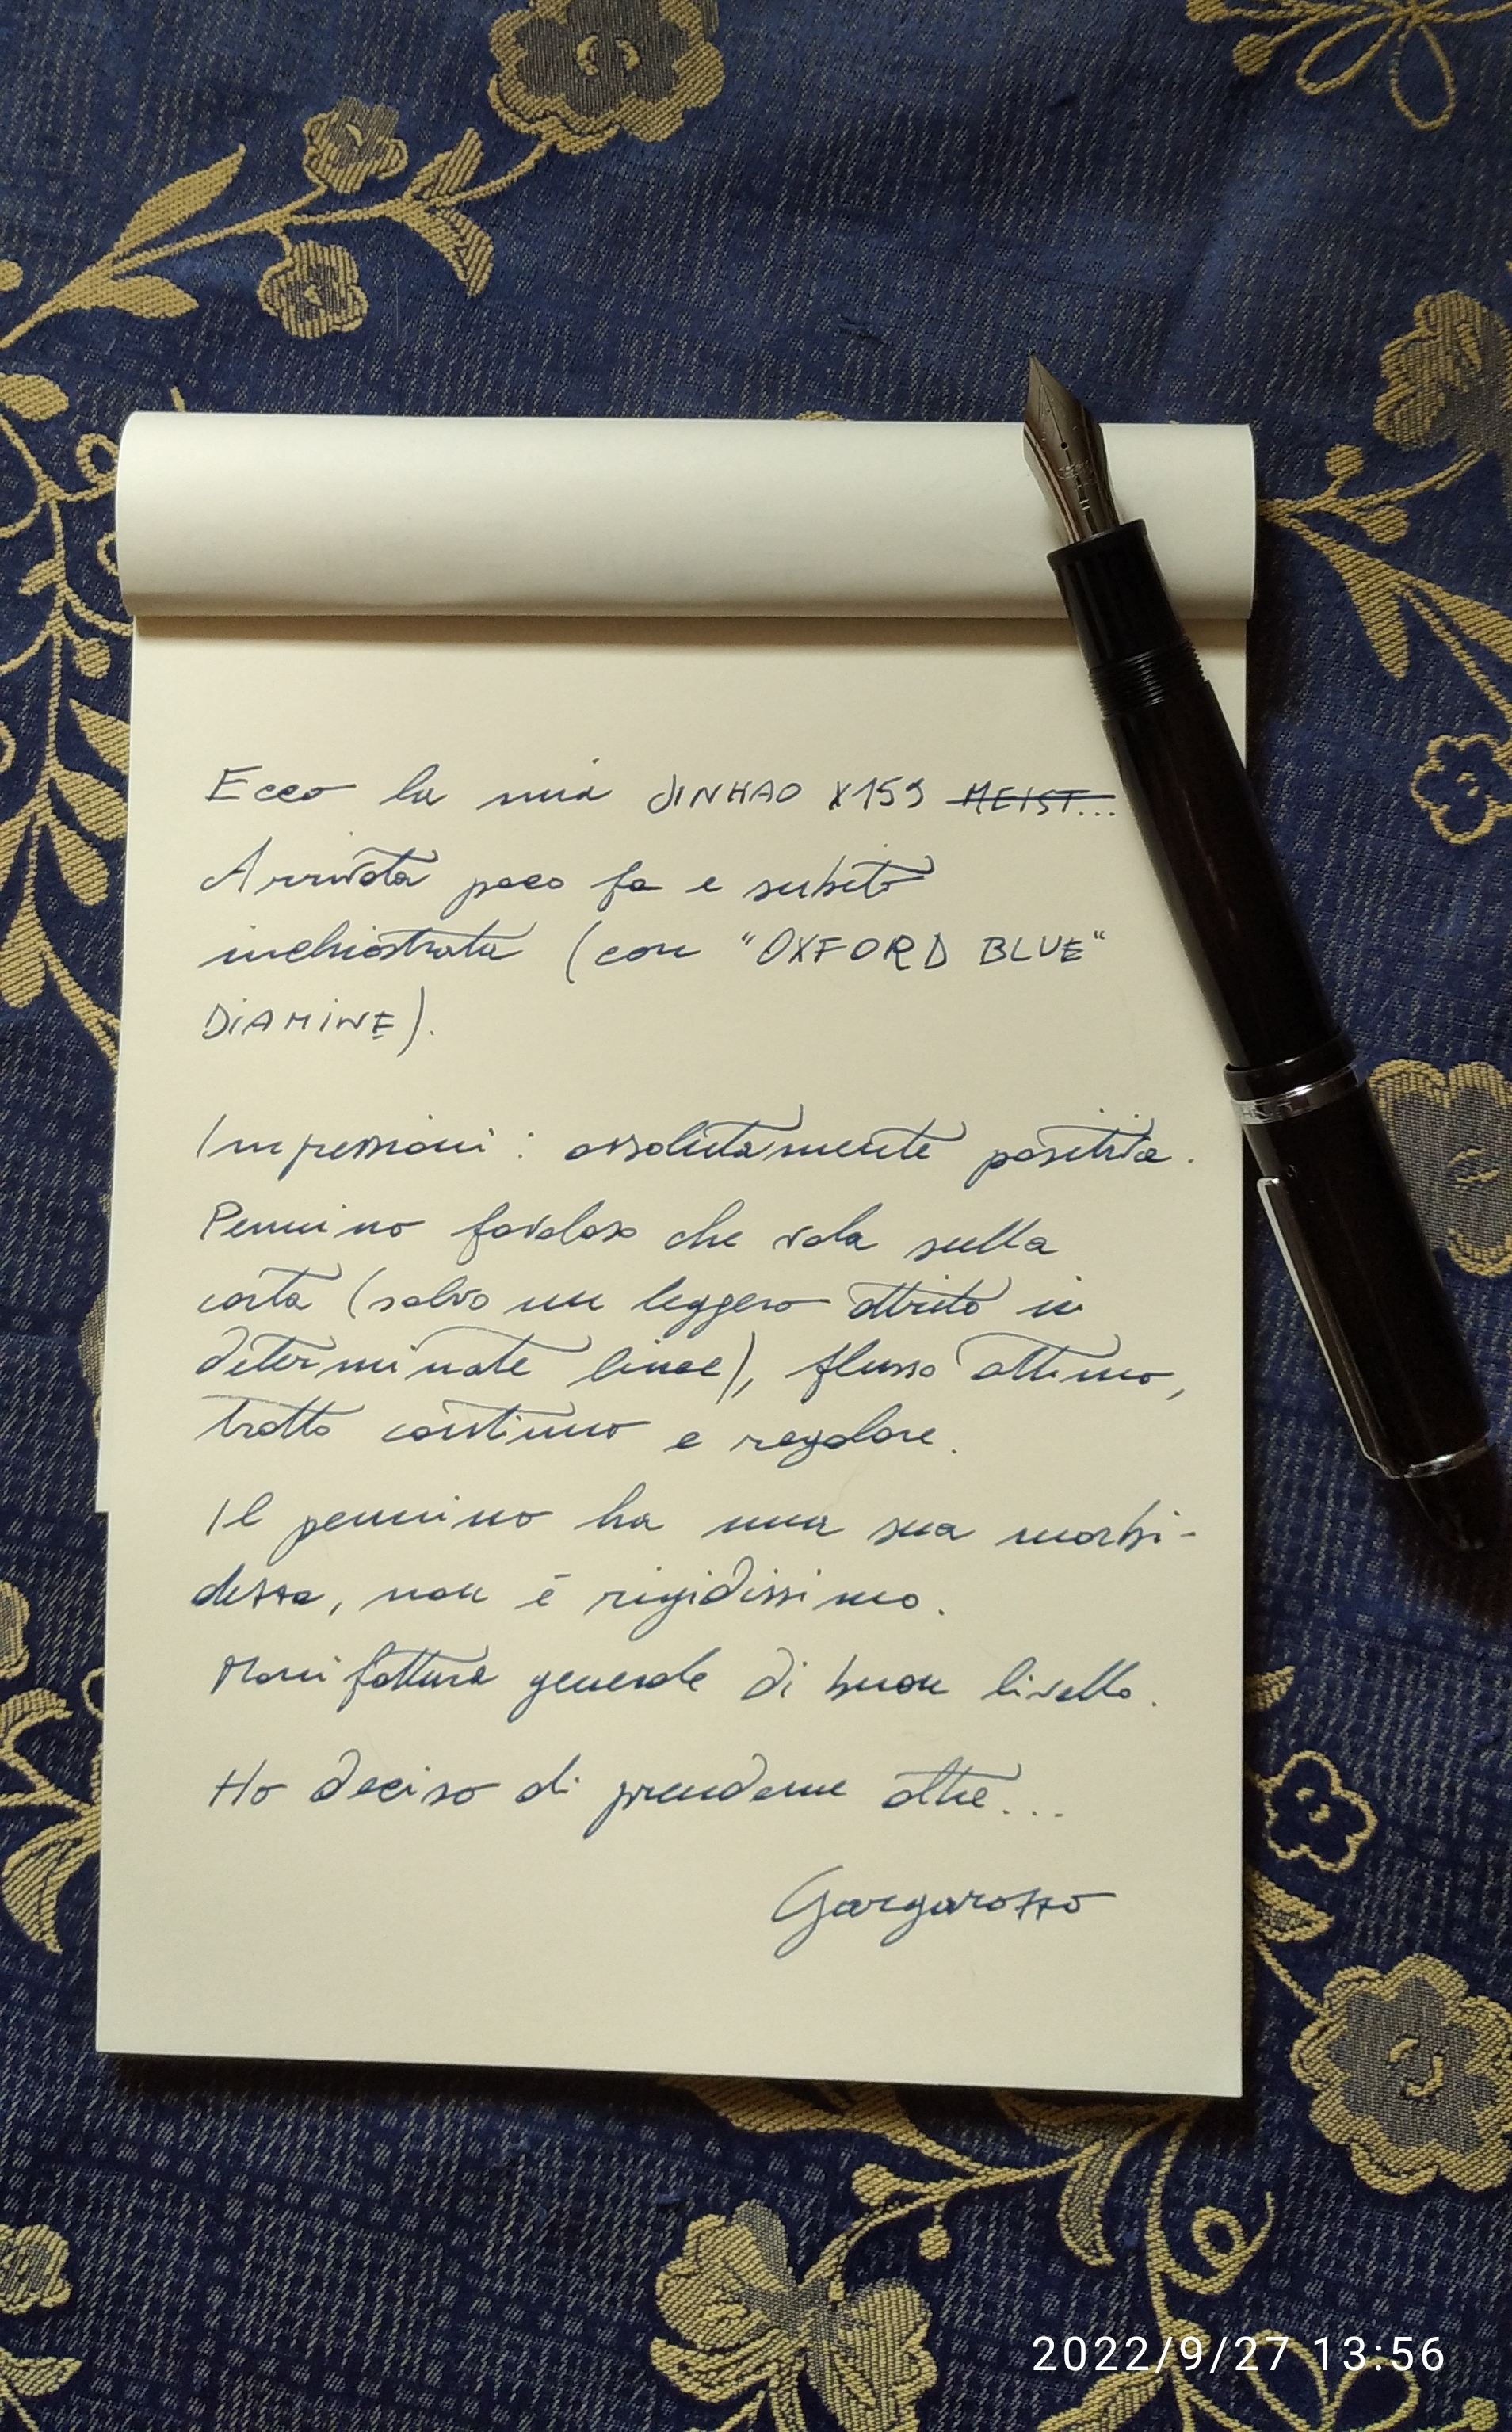 Ecco la mia JINHAO X159 MEIST...
Arrivata poco fa e subito
inchiostrata (con "OXFORD BLUE"
DIAMINE).
Impressioni: assolutamente positiva.
Pennino favoloso che vola sulla
carta (salvo un leggero attrito in
determinate linee), flusso ottimo,
tratto continuo e regolare.
Il pennino ha una sua morbi-
dezza, non è rigidissimo.
Manifattura generale di buon livello.
Ho deciso di prenderne altre...
Gargarozzo
2022/9/27 13:56